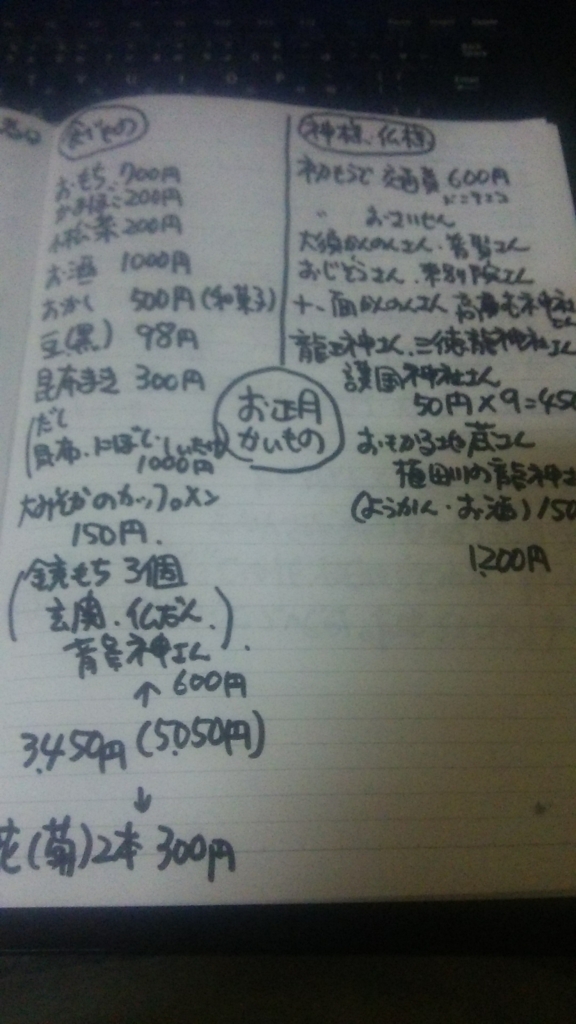 食べもの
おもち 700円
かまぼこ 200円
小松菜 200円
お酒 1000円
おかし 500円(和菓子)
豆(黒) 98円
昆布まき 300円
だし
昆布、にぼし、しいたけ
1000円
大みそかのカップメン
150円.
(鏡もち 3個
玄関、仏だん、
神さん)
↑ 600円
3,450円 (5,050円)
↓
花(菊)2本 300円
お正月
かいもの
神様、仏様
初もうで 交通費 600円
〃 おさいせん
大須かんのんさん、
おじぞうさん、東別院さん
十一面かんのんさん
龍王神さん、三徳龍神社さん
護国神社さん
50円×9=450
おもかる地蔵さん
植田川の龍神さ
(ようかん・お酒) 150
1,200円